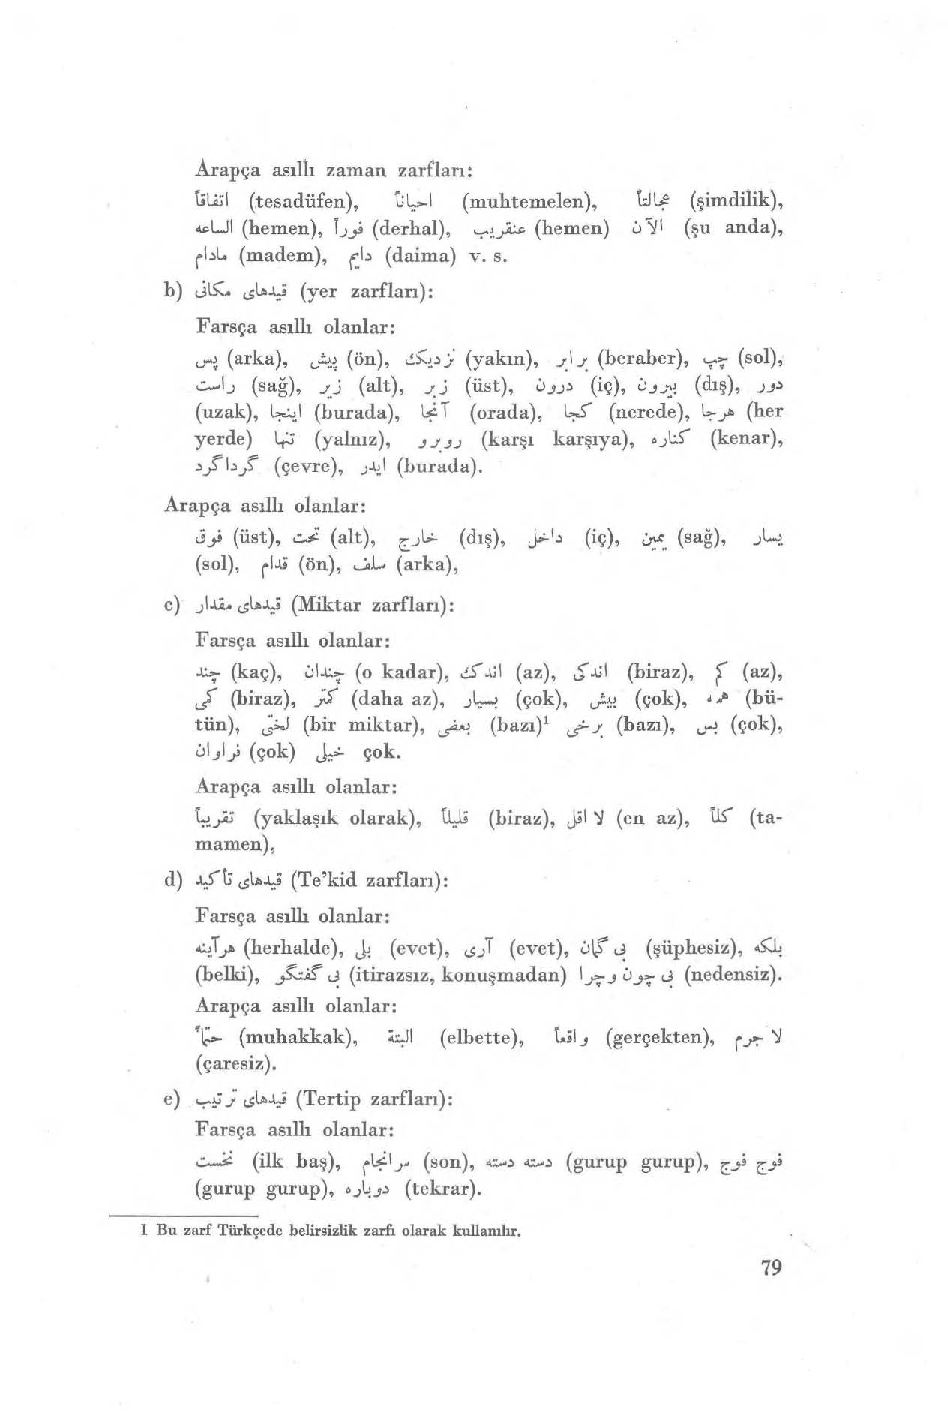 Arapça asıllı zaman zarfları:
اتفاقاً (tesadüfen), احیاناً (muhtemelen), عجالتاً (şimdilik),
الساعه (hemen), فوراً (derhal), عنقریب (hemen) الآن (şu anda),
مادام (madem), دایم (daima) v. s.
b) قیدهای مکانی (yer zarfları):
Farsça asıllı olanlar:
پس (arka), پیش (ön), نزدیک (yakın), برابر (beraber), چپ (sol),
راست (sağ), زیر (alt), زبر (üst), درون (iç), بیرون (dış), دور
(uzak), اینجا (burada), آنجا (orada), کجا (nerede), هرجا (her
yerde) تنها (yalnız), روبرو (karşı karşıya), کناره (kenar),
گرداگرد (çevre), ایدر (burada).
Arapça asıllı olanlar:
فوق (üst), تحت (alt), خارج (dış), داخل (iç), یمین (sağ), یسار
(sol), قدام (ön), سلف (arka),
c) قیدهای مقدار (Miktar zarfları):
Farsça asıllı olanlar:
چند (kaç), چندان (o kadar), اندک (az), اندکی (biraz), کم (az),
کمی (biraz), کمتر (daha az), بسیار (çok), بیش (çok), همه (bü-
tün), لختی (bir miktar), بعضی (bazı)¹ برخی (bazı), بس (çok),
فراوان (çok) خیلی çok.
Arapça asıllı olanlar:
تقریباً (yaklaşık olarak), قلیلاً (biraz), لا اقل (en az), کلاً (ta-
mamen),
d) قیدهای تأکید (Te'kid zarfları):
Farsça asıllı olanlar:
هرآینه (herhalde), بلی (evet), آری (evet), بی گمان (şüphesiz), بلکه
(belki), بی گفتگو (itirazsız, konuşmadan) بی چون و چرا (nedensiz).
Arapça asıllı olanlar:
حتماً (muhakkak), البته (elbette), واقعاً (gerçekten), لا جرم
(çaresiz).
e) قیدهای ترتیب (Tertip zarfları):
Farsça asıllı olanlar:
نخست (ilk baş), سرانجام (son), دسته دسته (gurup gurup), فوج فوج
(gurup gurup), دوباره (tekrar).
1 Bu zarf Türkçede belirsizlik zarfı olarak kullanılır.
79